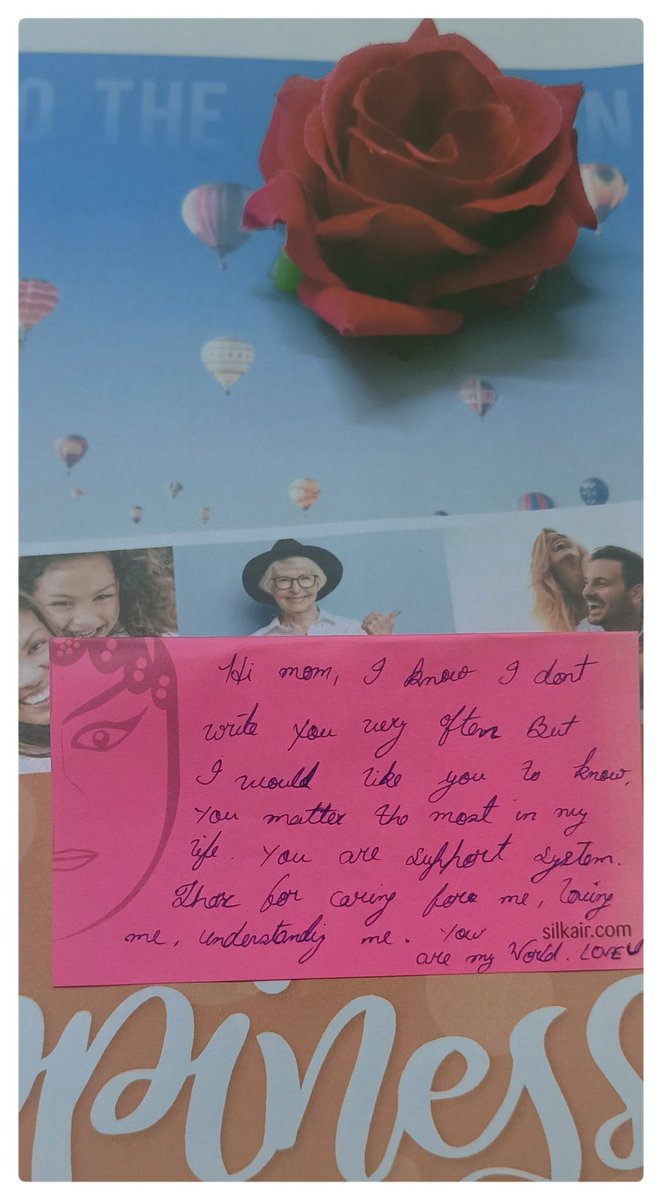 O THE
N
Hi mom, I know I dont
write you very often But
I would like you to know,
You matter the most in my
life. You are support system.
Thax for caring fore me, loving
me, understandig me. You
silkair.com
are my World. LOVE U
ppiness